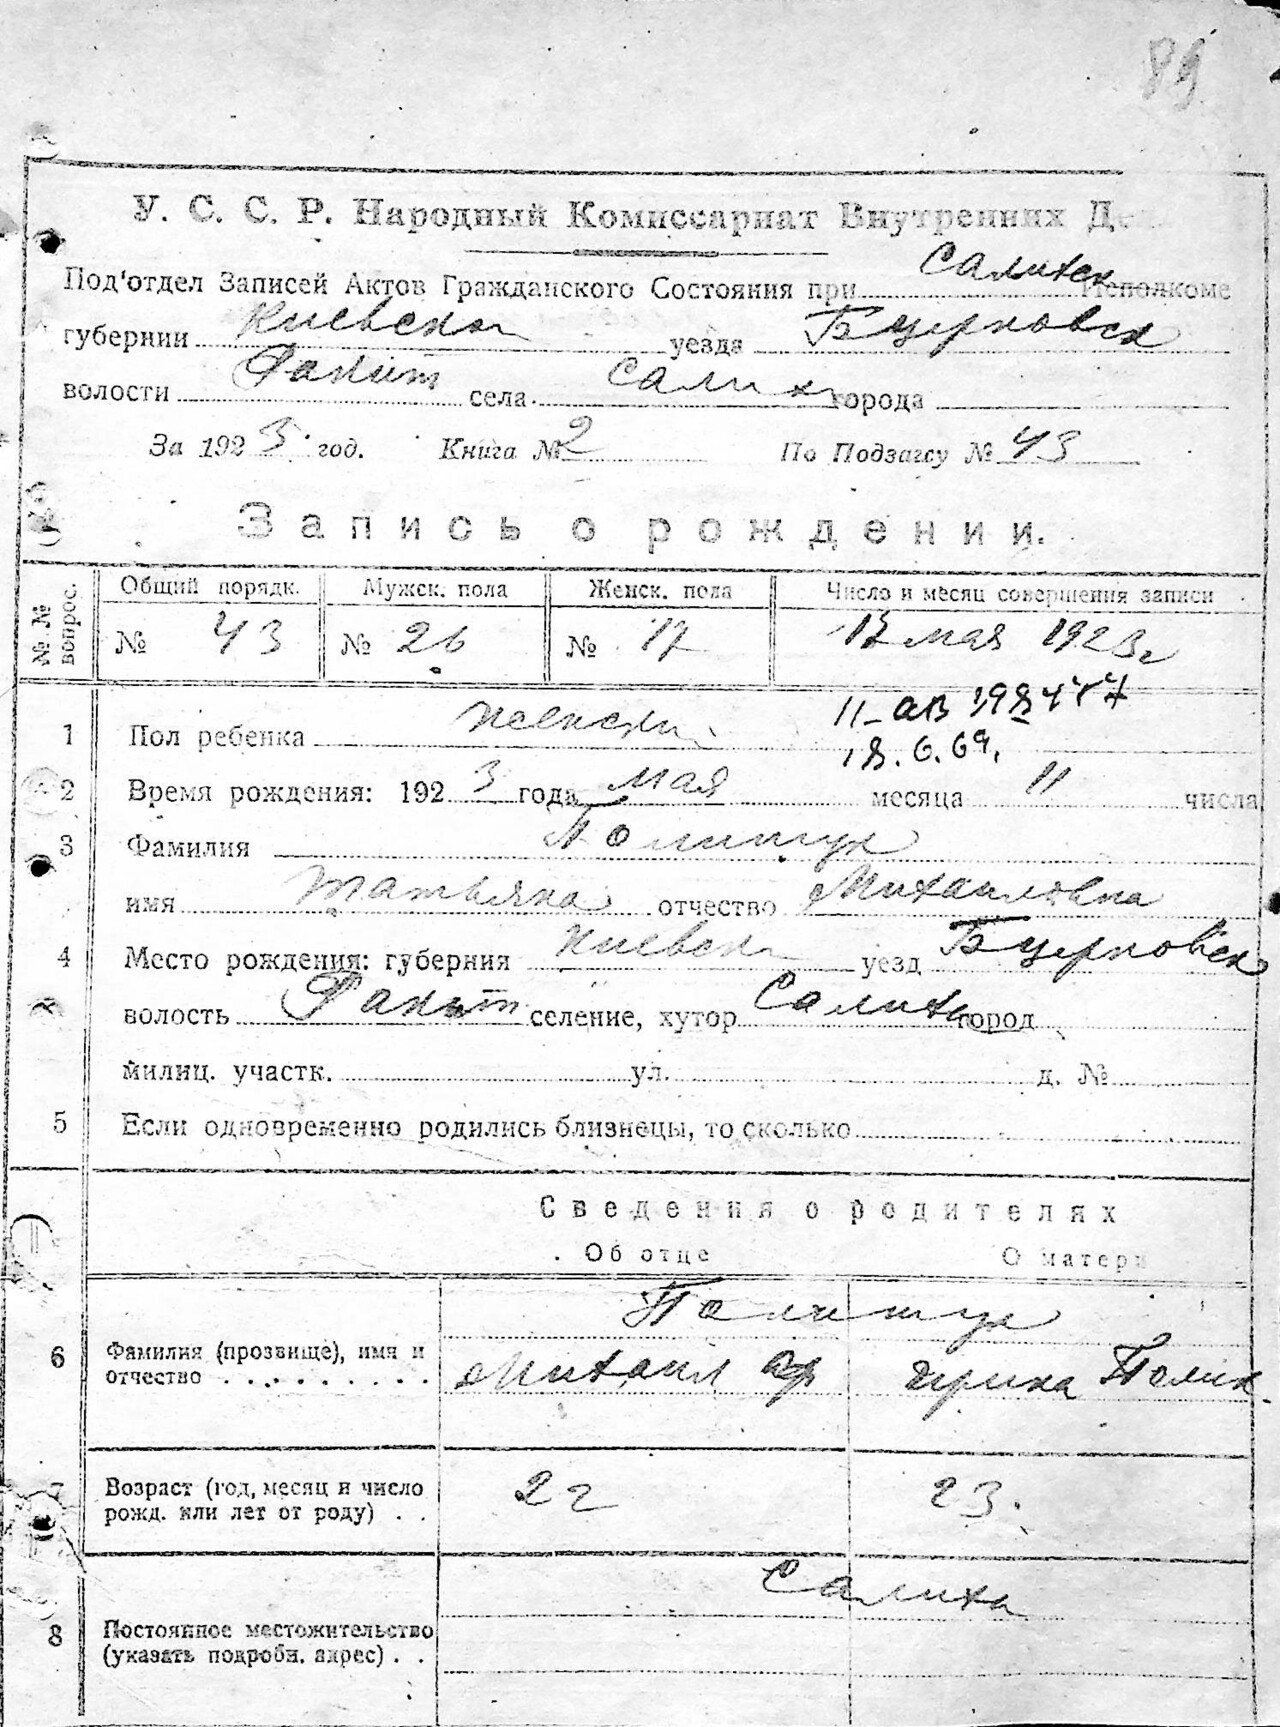 89
У. С. С. Р. Народный Комиссариат Внутренних Дел
Под'отдел Записей Актов Гражданского Состояния при Салихск Исполкоме
губернии Киевской уезда Бцерковск
волости Ракит села Салиха города
За 1923 год. Книга № 2 По Подзагсу № 43
Запись о рождении.
№ № вопрос. Общий порядк. Мужск. пола Женск. пола Число и месяц совершения записи
№ 43 № 26 № 17 мая 1923 г
1 Пол ребенка женски
18.6.69.
2 Время рождения: 1923 года мая месяца 11 числа
3 Фамилия Полищук
имя Татьяна отчество Михайловна
4 Место рождения: губерния Киевск уезд Бцерковск
волость Ракит селение, хутор Салиха город
милиц. участк. ул. д. №
5 Если одновременно родились близнецы, то сколько
Сведения о родителях
Об отце О матери
Полищук
6 Фамилия (прозвище), имя и
отчество Михаил Ирина
7 Возраст (год, месяц и число
рожд. или лет от роду) 22 23.
Салиха
8 Постоянное местожительство
(указать подробн. адрес)